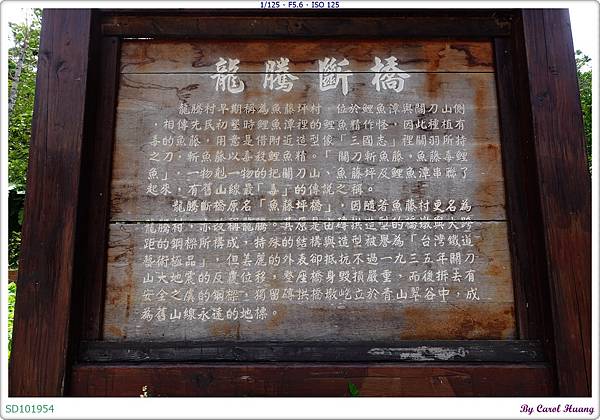 1/125 - F5.6 - ISO 125
龍騰斷橋
龍騰村早期稱為魚藤坪村，位於鯉魚潭與關刀山側
，相傳先民初墾時鯉魚潭裡的鯉魚精作怪，因此種植有
毒的魚藤，用意是借附近造型像「三國志」裡關羽所持
之刀，斬魚藤以毒殺鯉魚精。「關刀斬魚藤，魚藤毒鯉
魚」，一物剋一物的把關刀山、魚藤坪及鯉魚潭串聯了
起來，有舊山線最「毒」的傳說之稱。
龍騰斷橋原名「魚藤坪橋」，因隨著魚藤村更名為
龍騰村，亦改稱龍騰。其原是由磚拱造型的橋墩與大跨
距的鋼樑所構成，特殊的結構與造型被譽為「台灣鐵道
藝術極品」，但美麗的外表卻抵抗不過一九三五年關刀
山大地震的反覆位移，整座橋身毀損嚴重，而後拆去有
安全之虞的鋼樑，獨留磚拱橋墩屹立於青山翠谷中，成
為舊山線永遠的地標。
SD101954
By Carol Huang